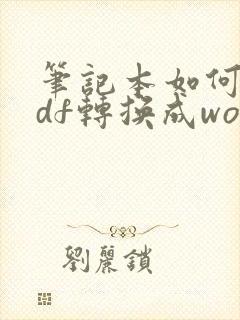 筆記本如何
df轉換成wo
劉麗鎖